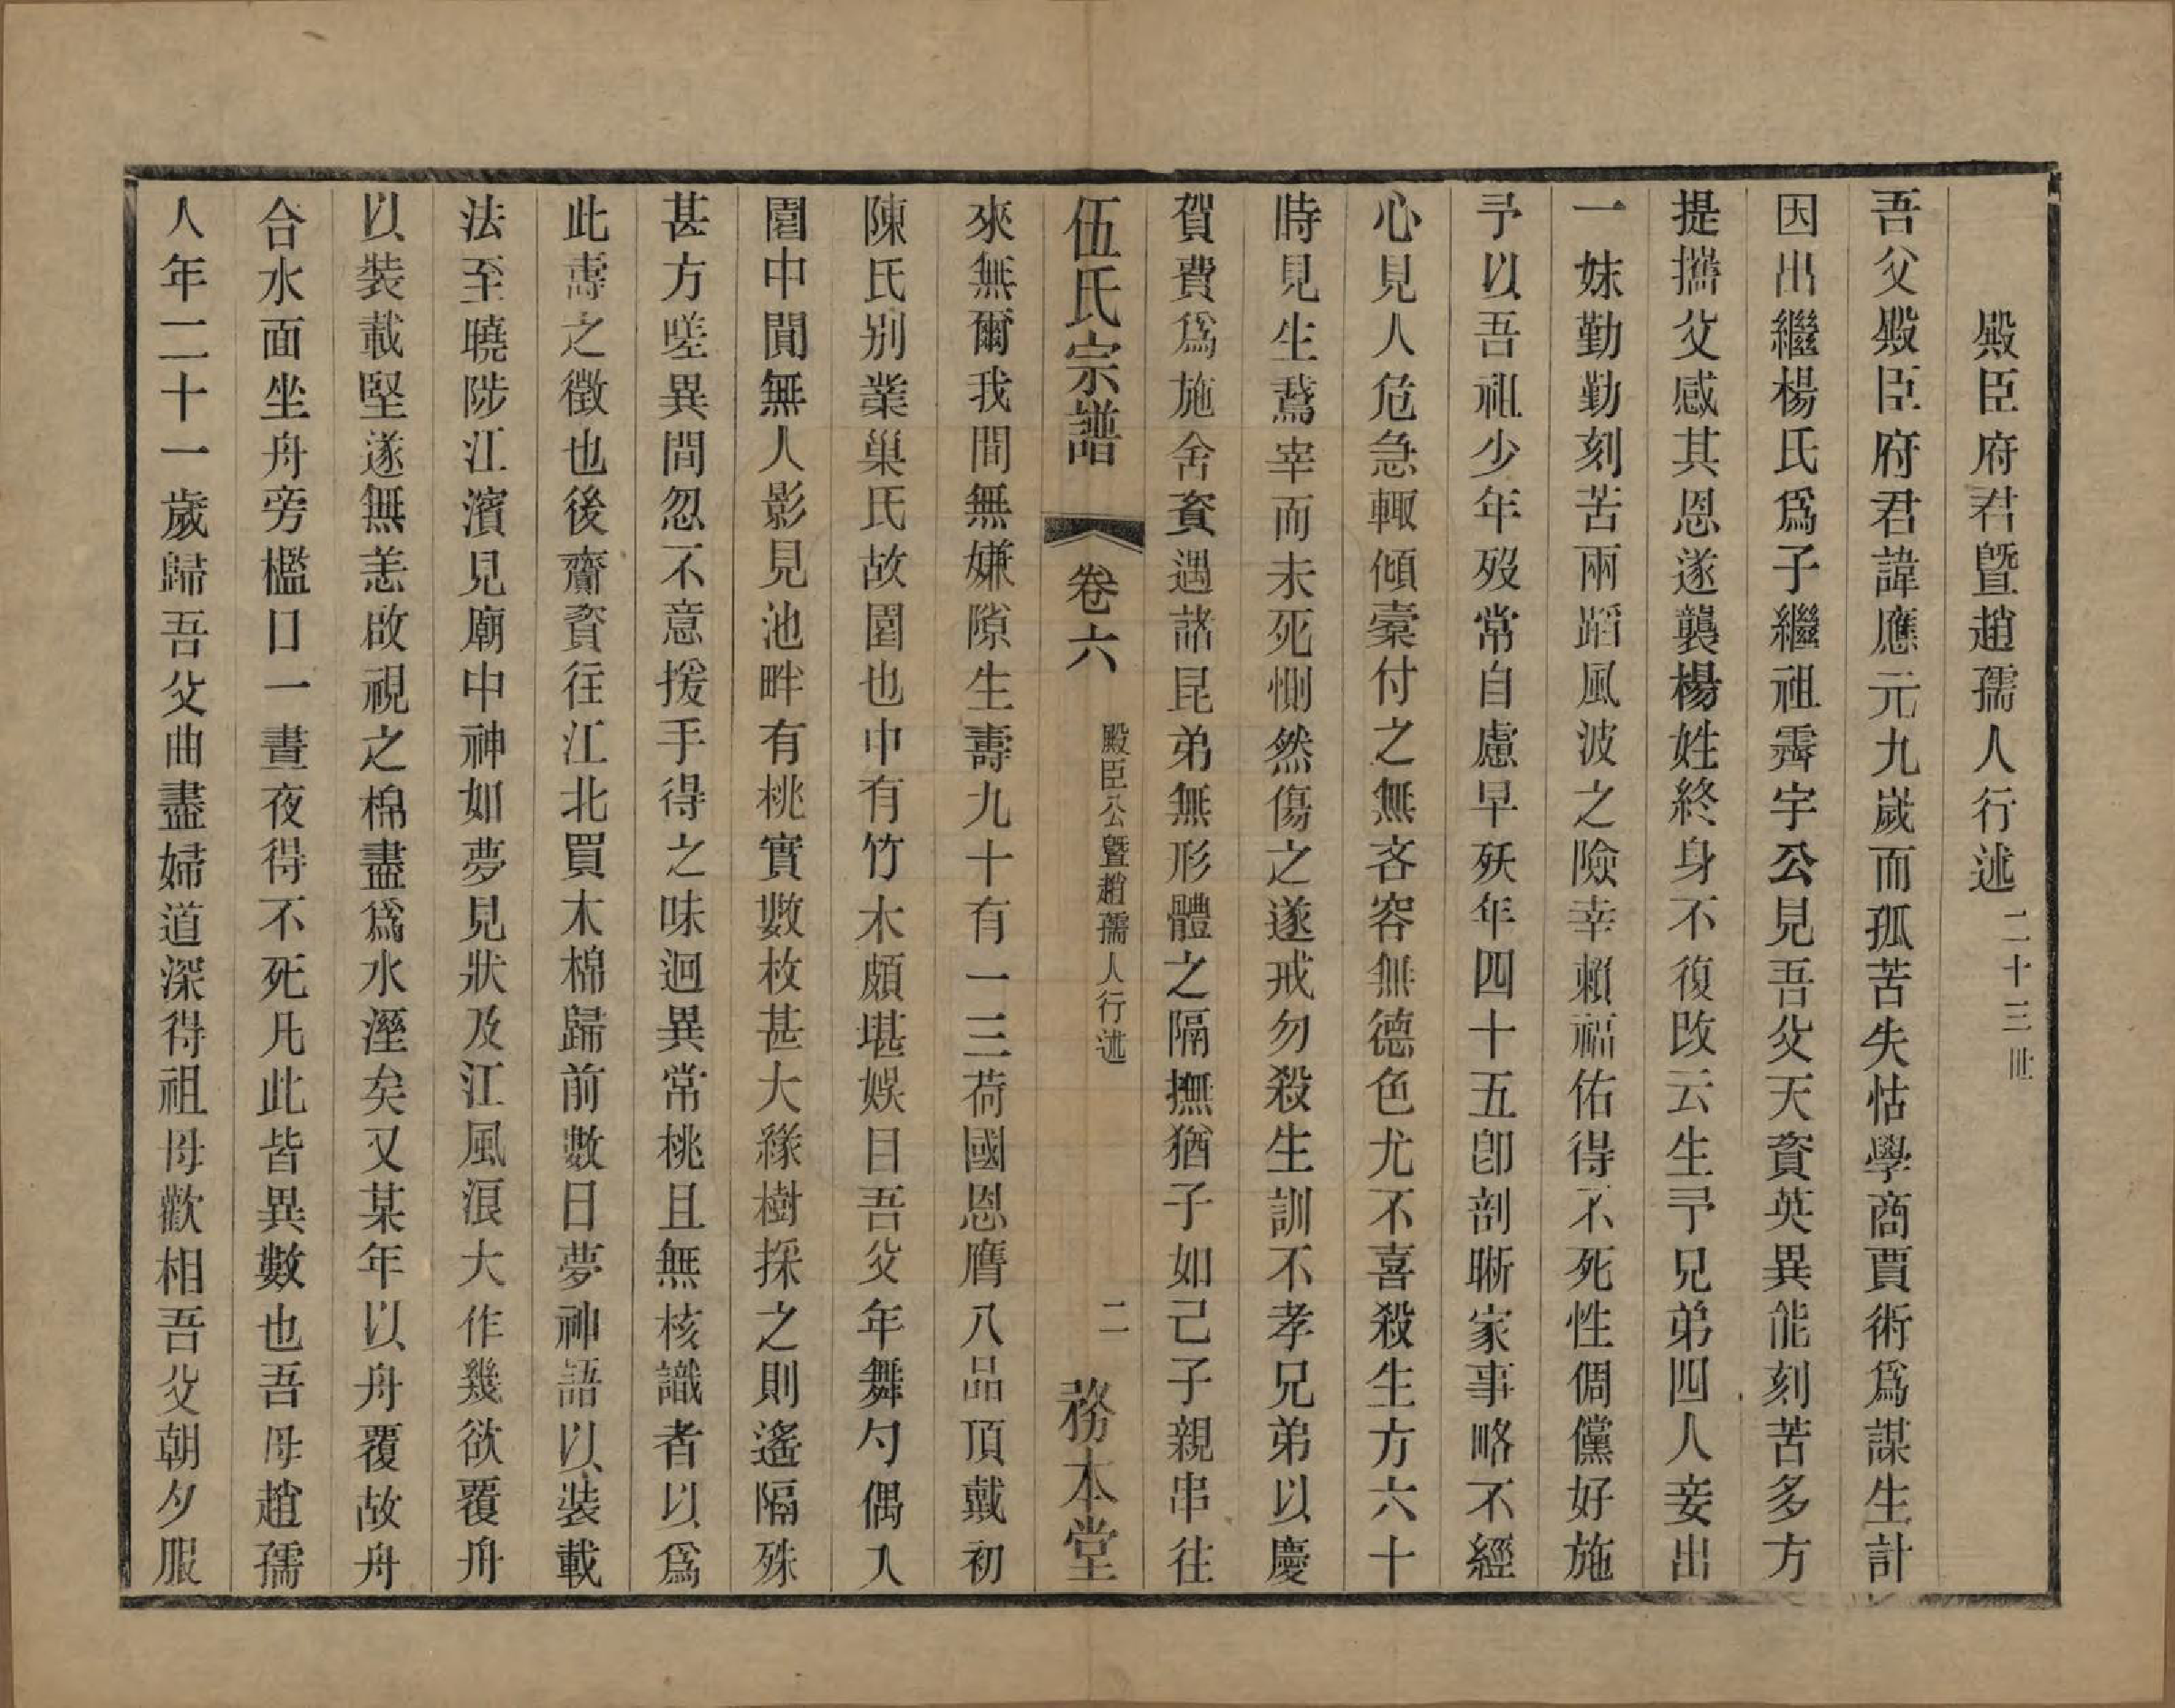 殿臣府君曁趙孺人行述二十三世
吾父殿臣府君諱應元九歲而孤苦失怙學商賈術爲謀生計
因出繼楊氏爲子繼祖霽宇公見吾父天資英異能刻苦多方
提攜父感其恩遂襲楊姓終身不復改云生予兄弟四人妾出
一妹勤勤刻苦兩蹈風波之險幸賴福佑得不死性倜儻好施
予以吾祖少年歿常自慮早殀年四十五卽剖晰家事略不經
心見人危急輙傾橐付之無吝容無德色尤不喜殺生方六十
時見生鵞宰而未死惻然傷之遂戒勿殺生訓不孝兄弟以慶
賀費爲施舍資遇諸昆弟無形體之隔撫猶子如己子親串往
伍氏宗譜 卷六 殿臣公曁趙孺人行述 二 務本堂
來無爾我間無嫌隙生壽九十有一三荷國恩膺八品頂戴初
陳氏别業巢氏故園也中有竹木頗堪娛目吾父年舞勺偶入
園中閴無人影見池畔有桃實數枚甚大緣樹採之則遙隔殊
甚方嗟異間忽不意援手得之味迥異常桃且無核識者以爲
此壽之徵也後齎資往江北買木棉歸前數日夢神語以裝載
法至曉陟江濱見廟中神如夢見狀及江風浪大作幾欲覆舟
以裝載堅遂無恙啟視之棉盡爲水溼矣又某年以舟覆故舟
合水面坐舟旁檻口一晝夜得不死凡此皆異數也吾母趙孺
人年二十一歲歸吾父曲盡婦道深得祖母歡相吾父朝夕服